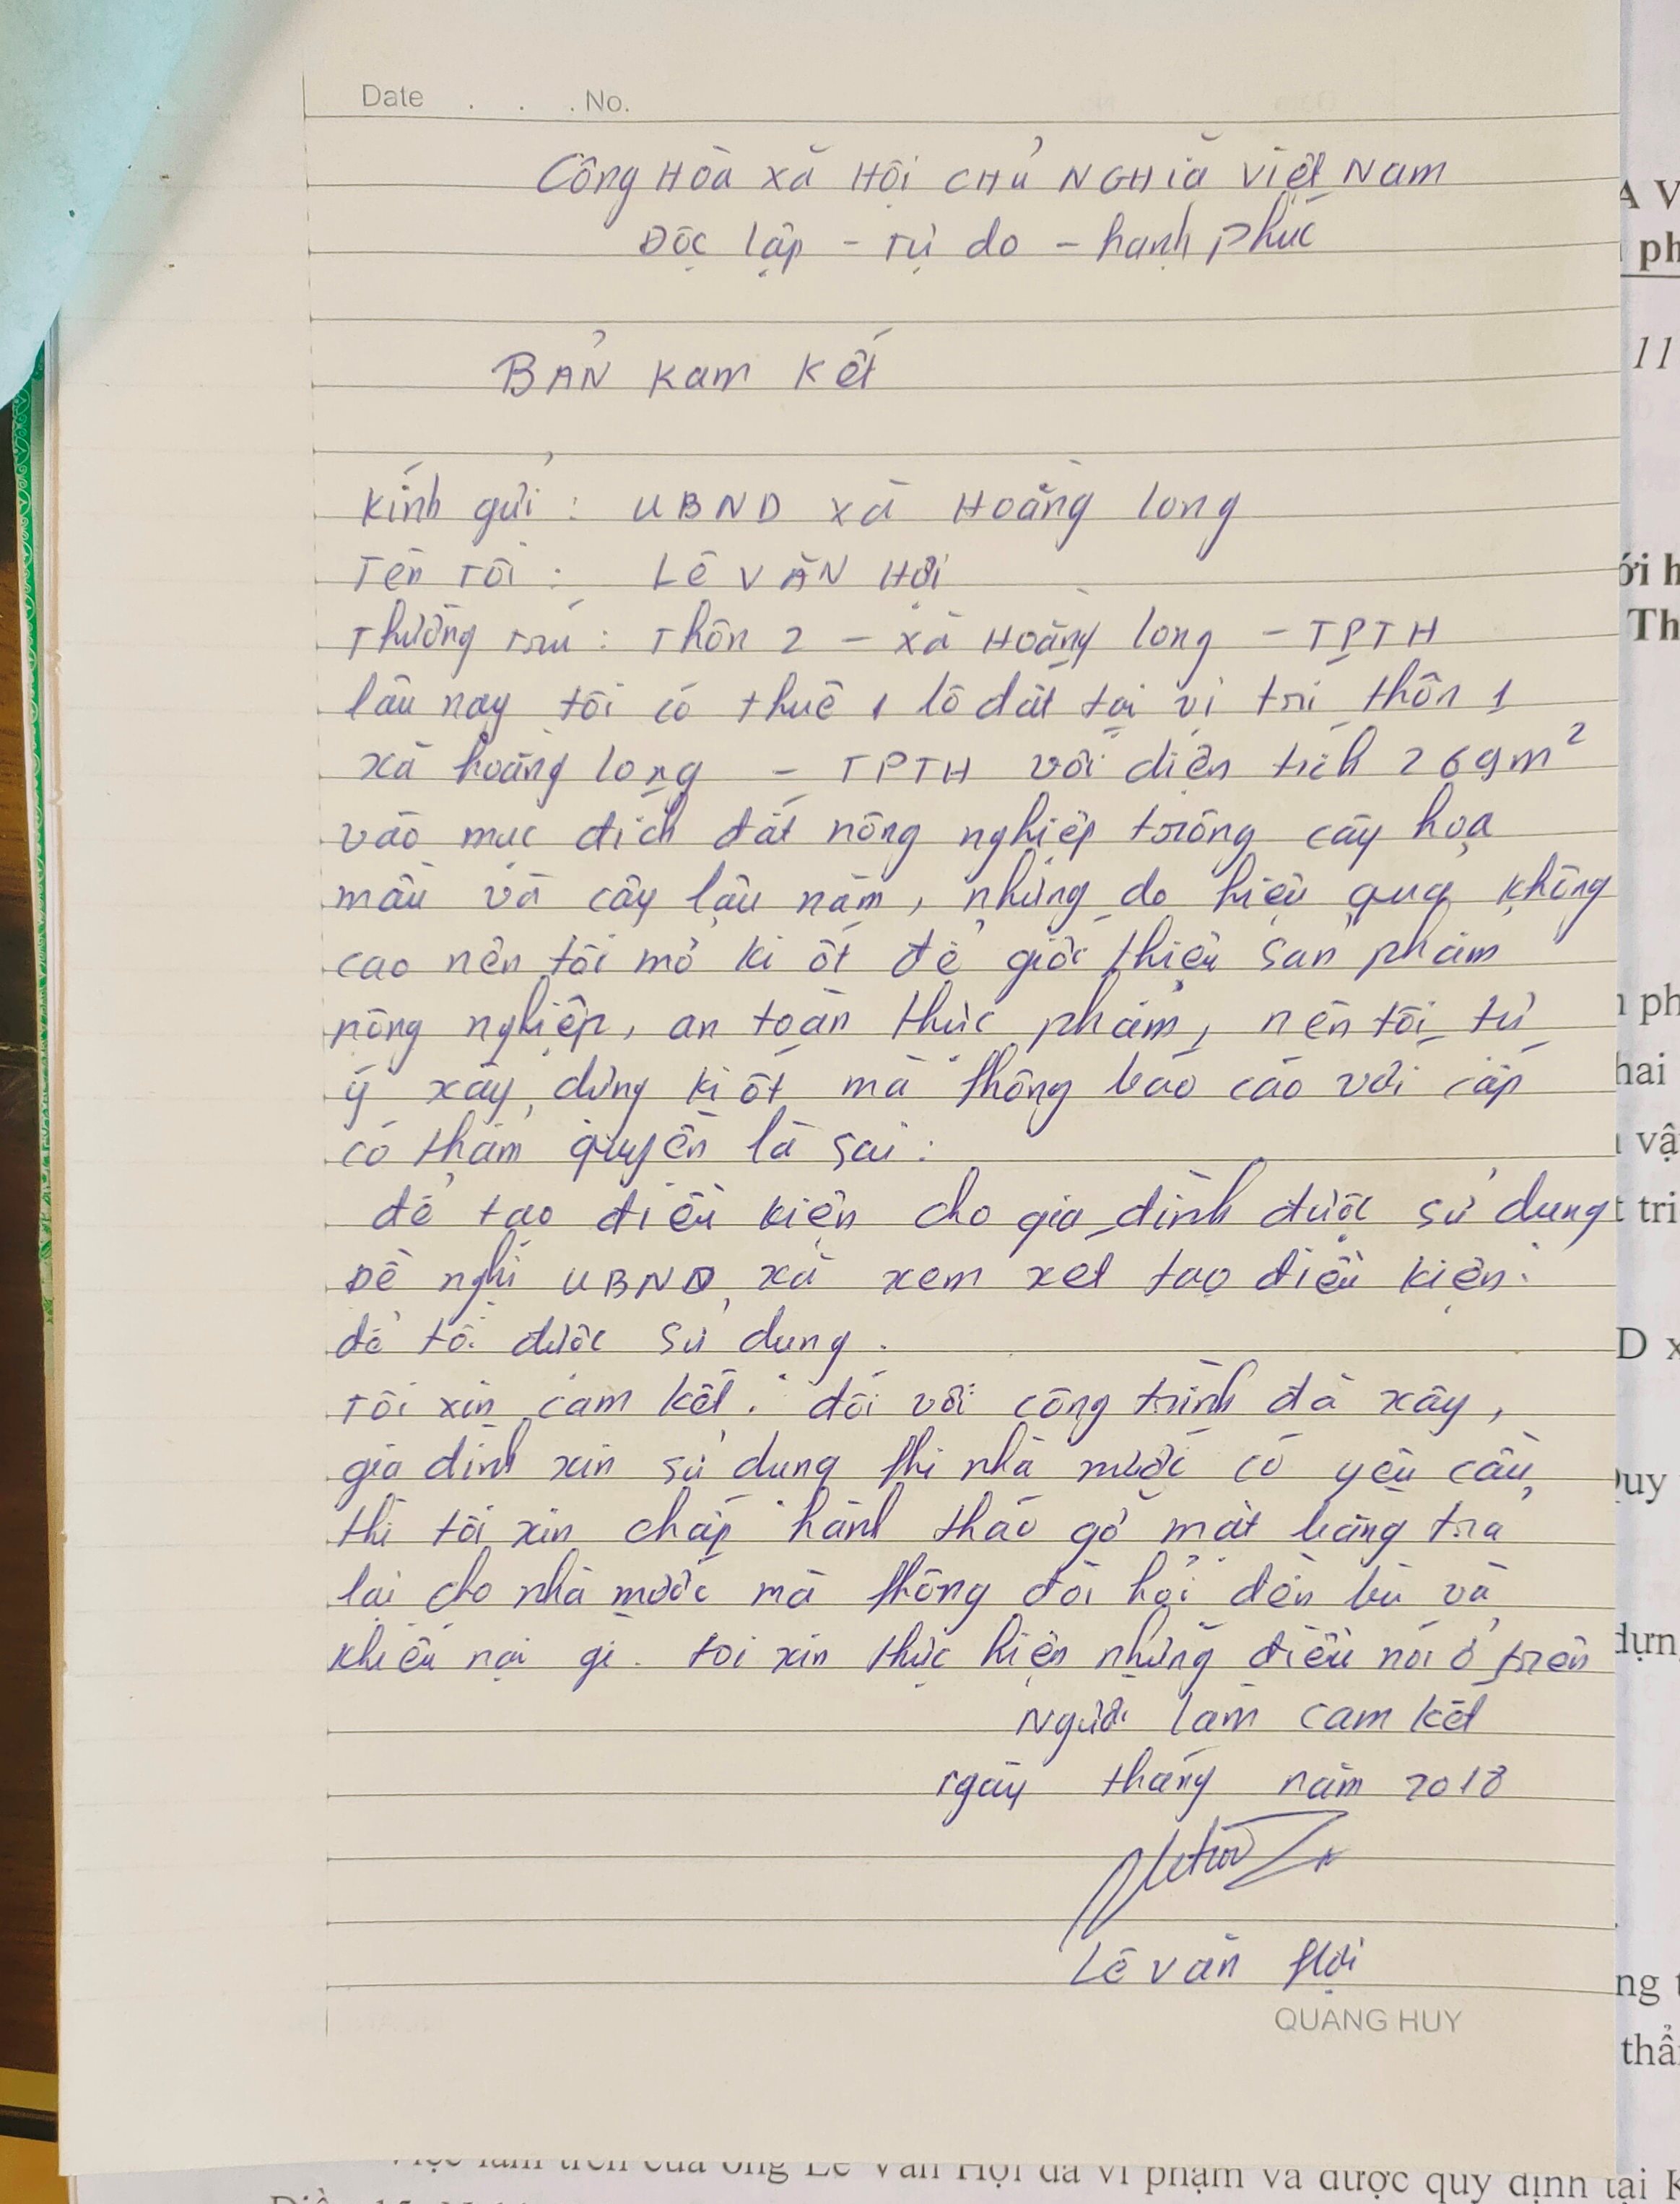 Date . . . No.
Công Hòa xã Hội CHỦ NGHĨA Việt Nam
Độc lập - Tự do - hạnh phúc
BẢN Kam Kết
Kính gửi : UBND xã Hoằng long
Tên Tôi : LÊ VĂN Hợi
Thường trú : Thôn 2 - xã Hoằng long - TPTH
lâu nay tôi có thuê 1 lô đất tại vị trí thôn 1
xã hoằng long - TPTH với diện tích 269m²
vào mục đích đất nông nghiệp trồng cây hoa
mầu và cây lâu năm, nhưng do hiệu quả không
cao nên tôi mở ki ốt để giới thiệu sản phẩm
nông nghiệp, an toàn thực phẩm, nên tôi tự
ý xây dựng ki ốt mà không báo cáo với cấp
có thẩm quyền là sai :
để tạo điều kiện cho gia đình được sử dụng
Đề nghị UBND xã xem xét tạo điều kiện
để tôi được sử dụng .
Tôi xin cam kết : đối với công trình đã xây,
gia đình xin sử dụng khi nhà nước có yêu cầu,
thì tôi xin chấp hành tháo gỡ mặt bằng trả
lại cho nhà nước mà không đòi hỏi đền bù và
khiếu nại gì. tôi xin thực hiện những điều nói ở trên
Người làm cam kết
ngày tháng năm 2018
Lê văn Hợi
QUANG HUY
A V
ph
11
ới h
Th
ph
hai
vậ
tri
D x
uy
dựn
ng t
thẩ
Việc làm trên của ông Lê Văn Hợi đã vi phạm và được quy định tại K